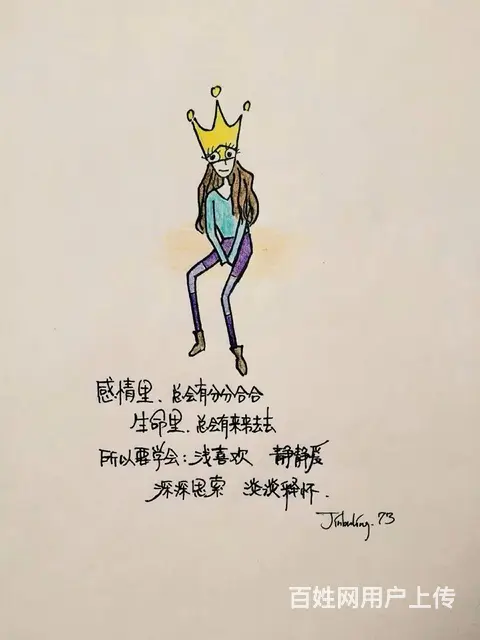 感情里、总会有分分合合
生命里、总会有来来去去
所以要学会：浅喜欢 静静爱
深深思索 淡淡释怀.
Jinbuling.73
百姓网用户上传